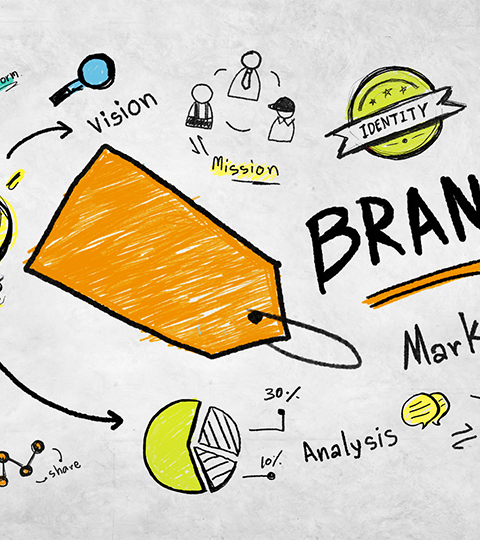 orm
Vision
Mission
IDENTITY
BRAN
Mark
30%
10%
Analysis
share